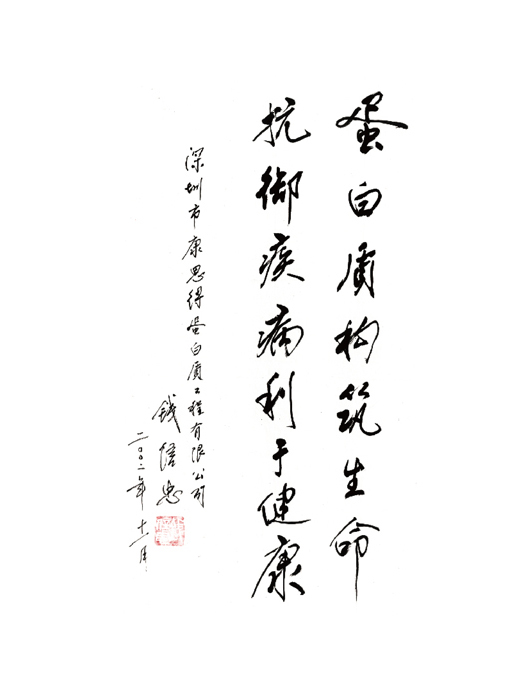 蛋白质构筑生命
抗御疾病利于健康
深圳市康思得蛋白质工程有限公司
钱信忠
二〇〇二年十一月